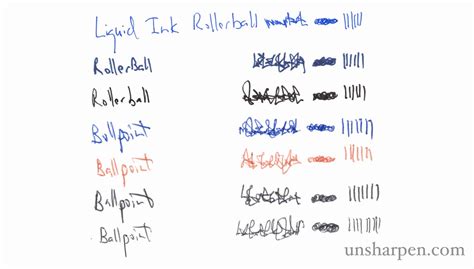 Liquid Ink Rollerball
RollerBall
Rollerball
Ballpoint
Ballpoint
Ballpoint
Ballpoint
unsharpen.com